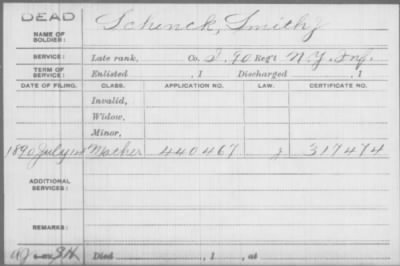 DEAD
NAME OF SOLDIER: Schenck, Smith J
SERVICE: Late rank, Co. I, 90 Reg't N.Y. Inf.
TERM OF SERVICE: Enlisted , 1 Discharged , 1
DATE OF FILING. CLASS. APPLICATION NO. LAW. CERTIFICATE NO.
Invalid,
Widow,
Minor,
1890 July Mother 440467 317474
ADDITIONAL SERVICES:
REMARKS:
Died , 1 , at